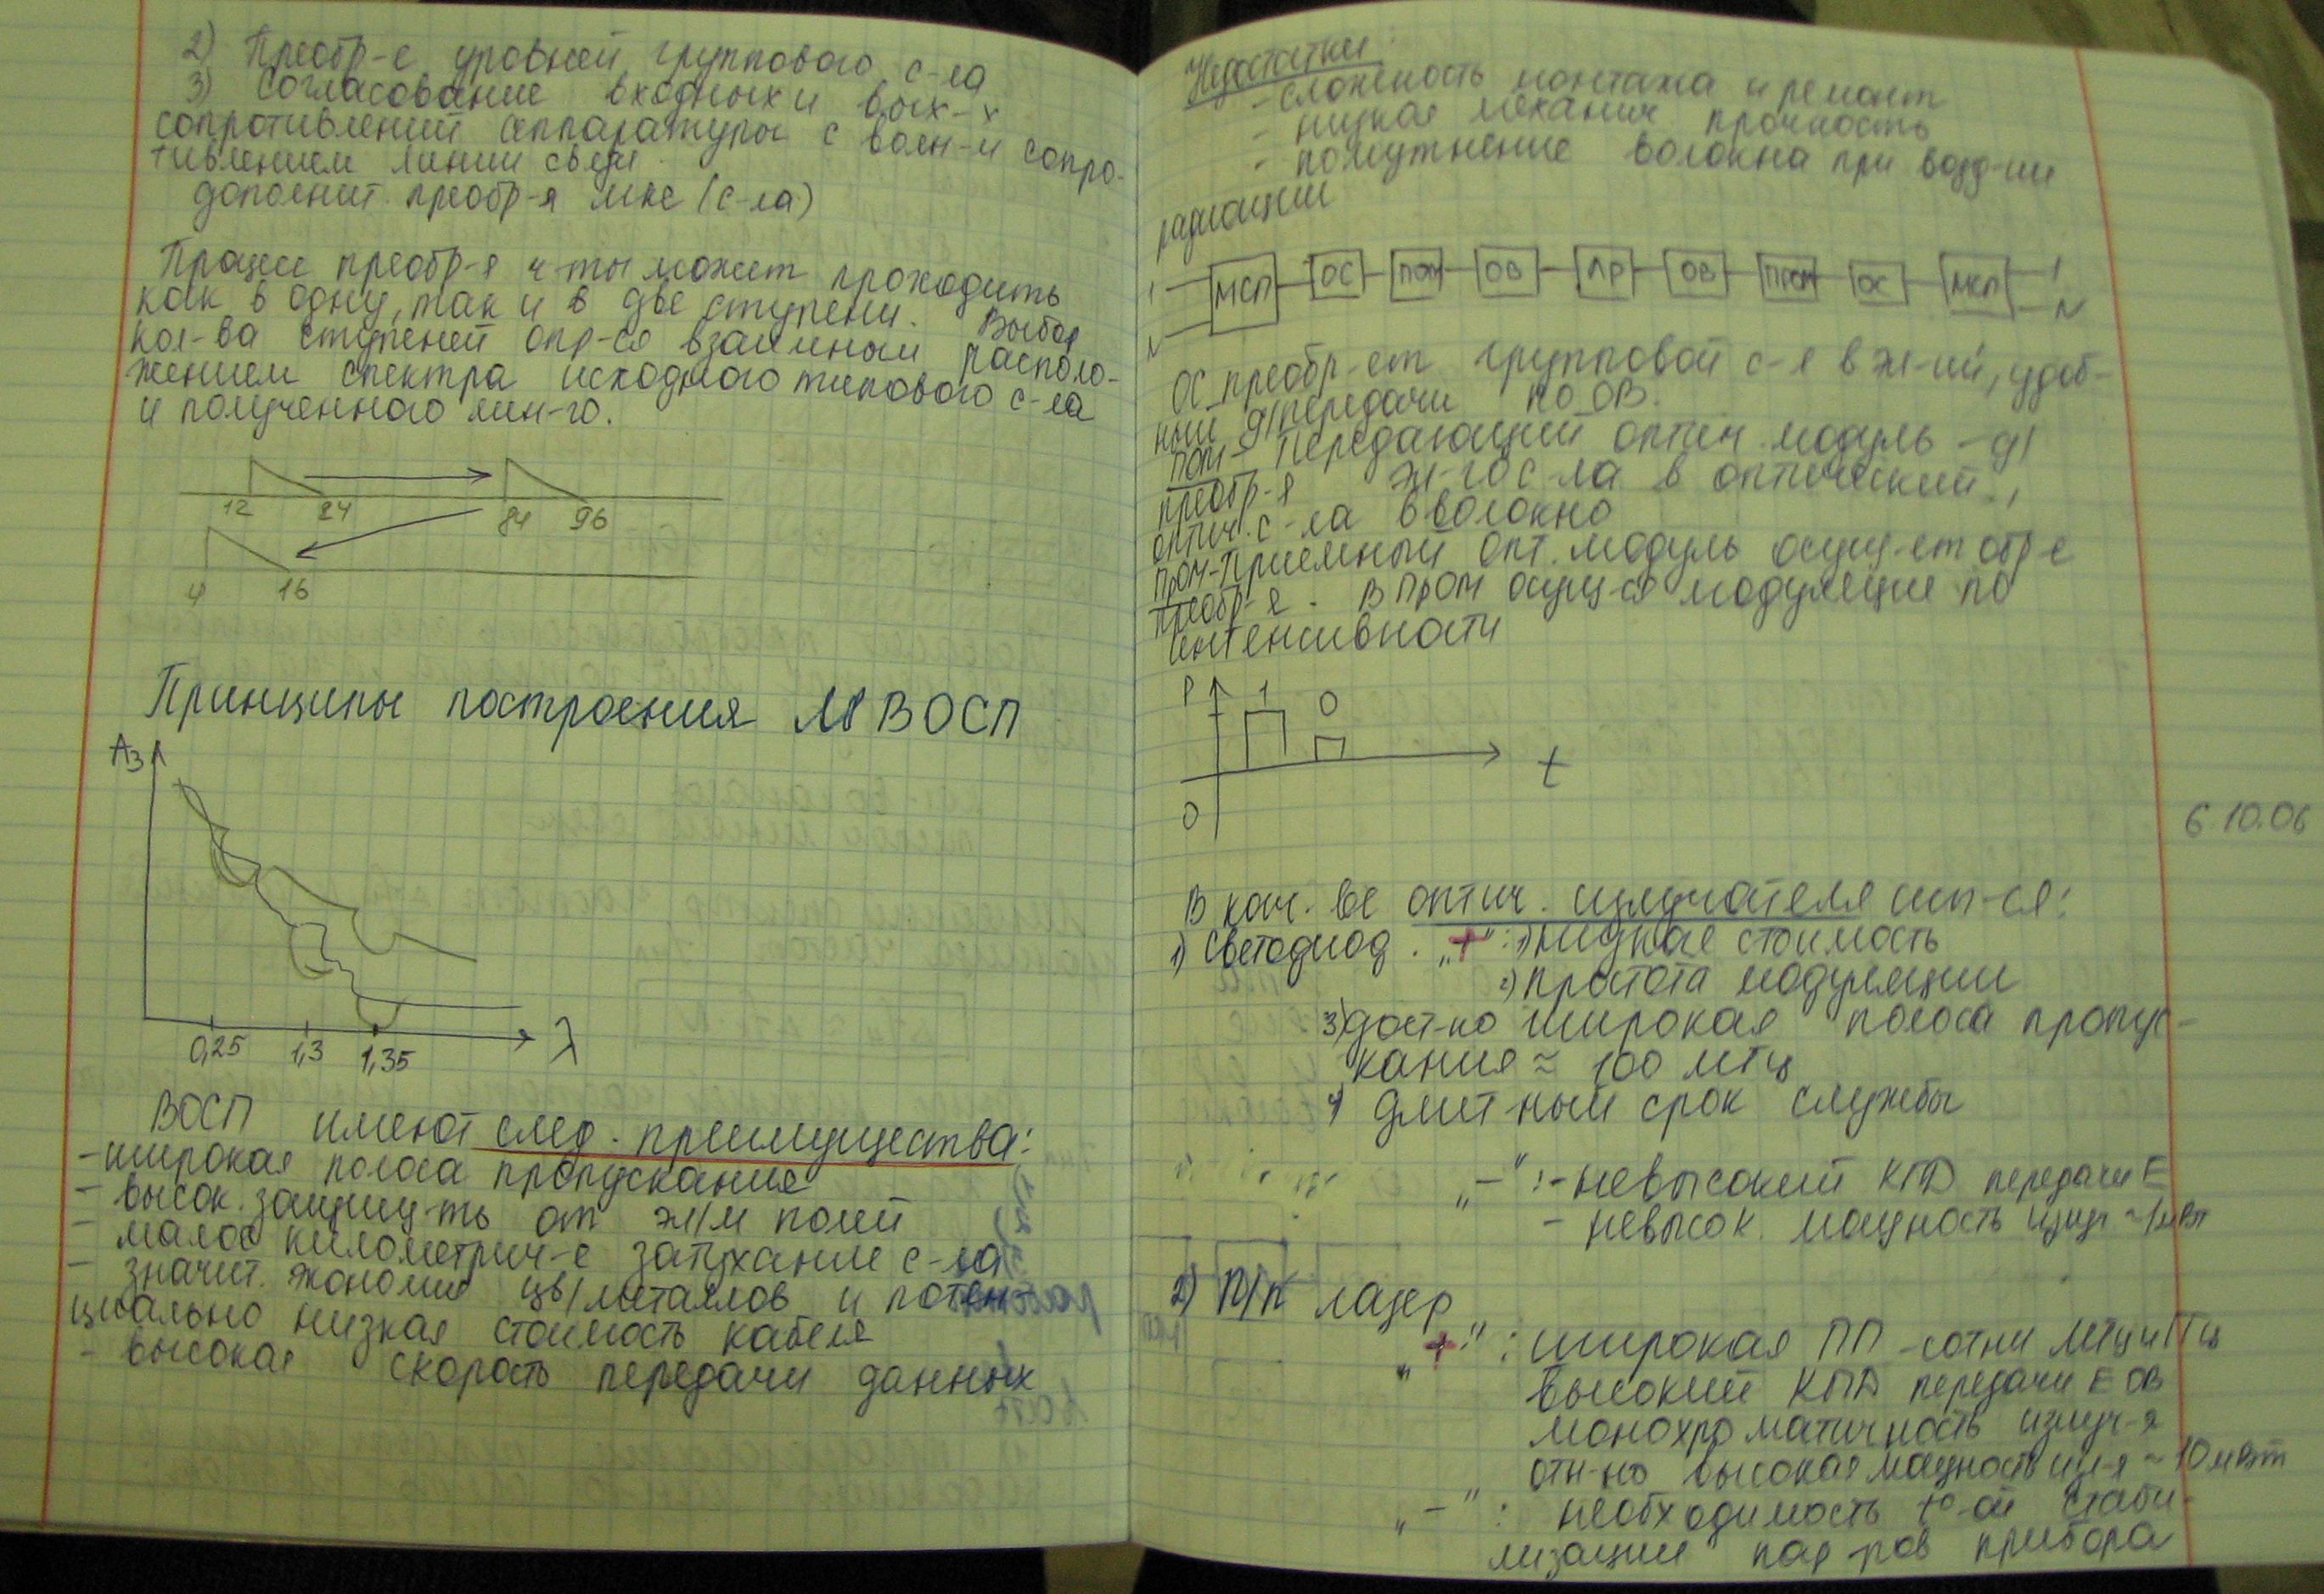 2) Преобр-е уровней группового с-ла
3) Согласование входных и вых-х
сопротивлений аппаратуры с волн-м сопро-
тивлением линии связи
дополнит. преобр-я (с-ла)
Процесс преобр-я ч-ты может проходить
как в одну, так и в две ступени. Выбор
кол-ва ступеней опр-ся взаимным располо-
жением спектра исходного типового с-ла
и полученного лин-го.
12 24 84 96
4 16
Принципы построения ВОСП
Аз
0,25 1,3 1,35 λ
ВОСП имеют след. преимущества:
- широкая полоса пропускания
- высок. защищ-ть от эл/м полей
- малое километрич-е затухание с-ла
- значит. экономия цв/металлов и потен-
циально низкая стоимость кабеля
- высокая скорость передачи данных
Недостатки:
- сложность монтажа и ремонт
- низкая механич прочность
- помутнение волокна при возд-ии
радиации
1 МСП ОС ПОМ ОВ ЛР ОВ ПРОМ ОС МСП 1
N N
ОС преобр-ет групповой с-л в эл-ий, удоб-
ный д/передачи по ОВ.
ПОМ - Передающий оптич. модуль - д/
преобр-я эл-го с-ла в оптический,
оптич. с-ла в волокно
ПрОМ - Приемный опт. модуль осущ-ет обр-е
преобр-е. В ПрОМ осущ-ся модуляция по
интенсивности
P 1 0
t
0
6.10.06
В кач-ве оптич. излучателя исп-ся:
1) Светодиод. „+": 1) низкая стоимость
2) простота модуляции
3) дост-но широкая полоса пропус-
кания ≈ 100 МГц
4) длит-ный срок службы
„-": - невысокий КПД передачи Е
- невысок. мощность излуч ~1мВт
2) П/п лазер
„+": широкая ПП - сотни МГц и ГГц
высокий КПД передачи Е ОВ
монохроматичность излуч-я
отн-но высокая мощность изл-я ~ 10 мВт
„-": необходимость t°-ой стаби-
лизации пар-ров прибора